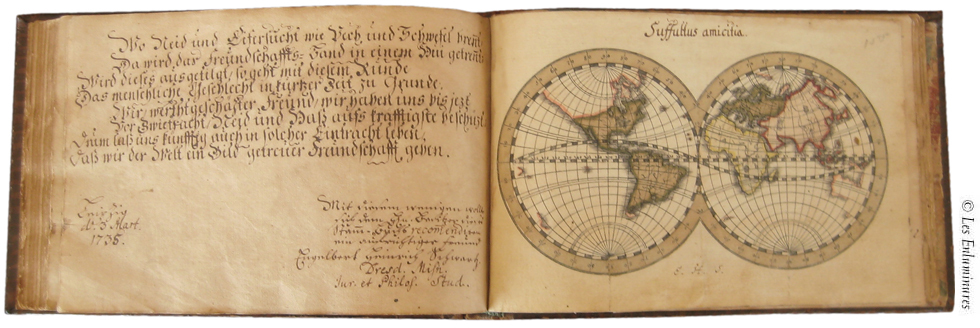 Wo Neid und Eifersucht wie Pech und Schwefel brent
Da wird der Freundschaffts-Band in einem Nu getrent
Wird dieses ausgetilgt, so geht mit diesem Runde
Das menschliche Geschlecht in kurtzer Zeit zu Grunde.
Wir, werthgeschätzter Freund, wir haben uns bis jetzt
Vor Zwietracht, Neid und Haß aufs kräfftigste beschützt
Drum laß uns künfftig auch in solcher Eintracht leben,
Daß wir der Welt ein Bild getreuer Freundschafft geben.
Leipzig
d. 3 Mart.
1735.
Mit diesem wenigen wolte
sich dem Hn. Besitzer dieses
Stamm-Buchs recommendiren
ein aufrichtiger Freund
Engelbert Heinrich Schwartz
Dresd. Misn.
Jur. et Philos. Stud.
Suffultus amicitia.
E. H. S.
© Les Enluminures